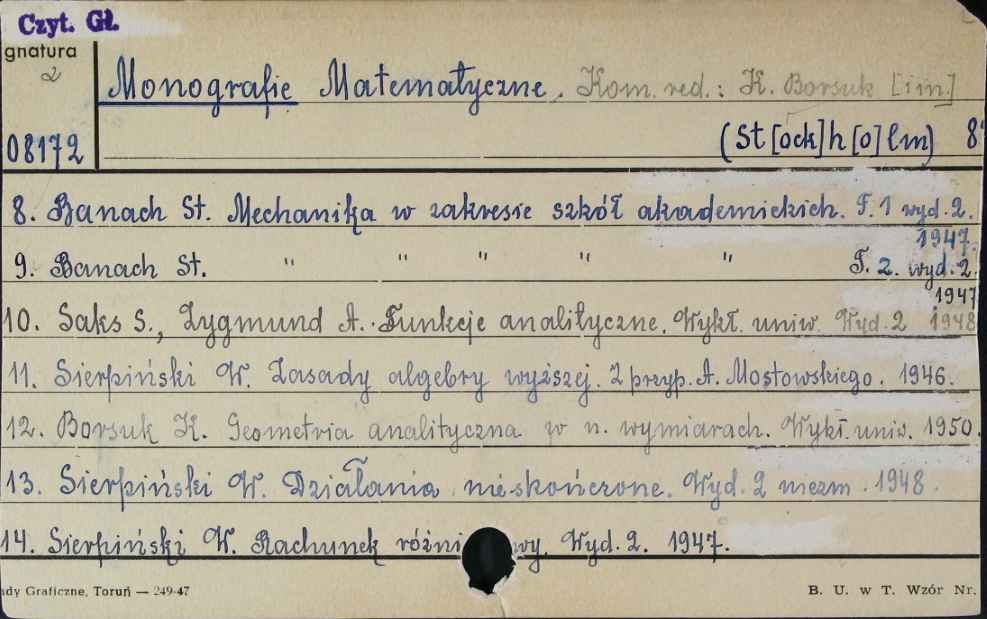 Czyt. Gł.
gnatura
2
Monografie Matematyczne. Kom. red.: K. Borsuk [i in.]
08172 (St[ock]h[o]lm) 8°
8. Banach St. Mechanika w zakresie szkół akademickich. T. 1 wyd. 2.
1947.
9. Banach St. " " " " " T. 2. wyd. 2.
1947
10. Saks S., Zygmund A. Funkcje analityczne. Wykł. uniw. Wyd. 2 1948
11. Sierpiński W. Zasady algebry wyższej. Z przyp. A. Mostowskiego. 1946.
12. Borsuk K. Geometria analityczna w n. wymiarach. Wykł. uniw. 1950.
13. Sierpiński W. Działania nieskończone. Wyd. 2 niezm. 1948.
14. Sierpiński W. Rachunek różni wy. Wyd. 2. 1947.
ady Graficzne, Toruń — 249-47 B. U. w T. Wzór Nr.